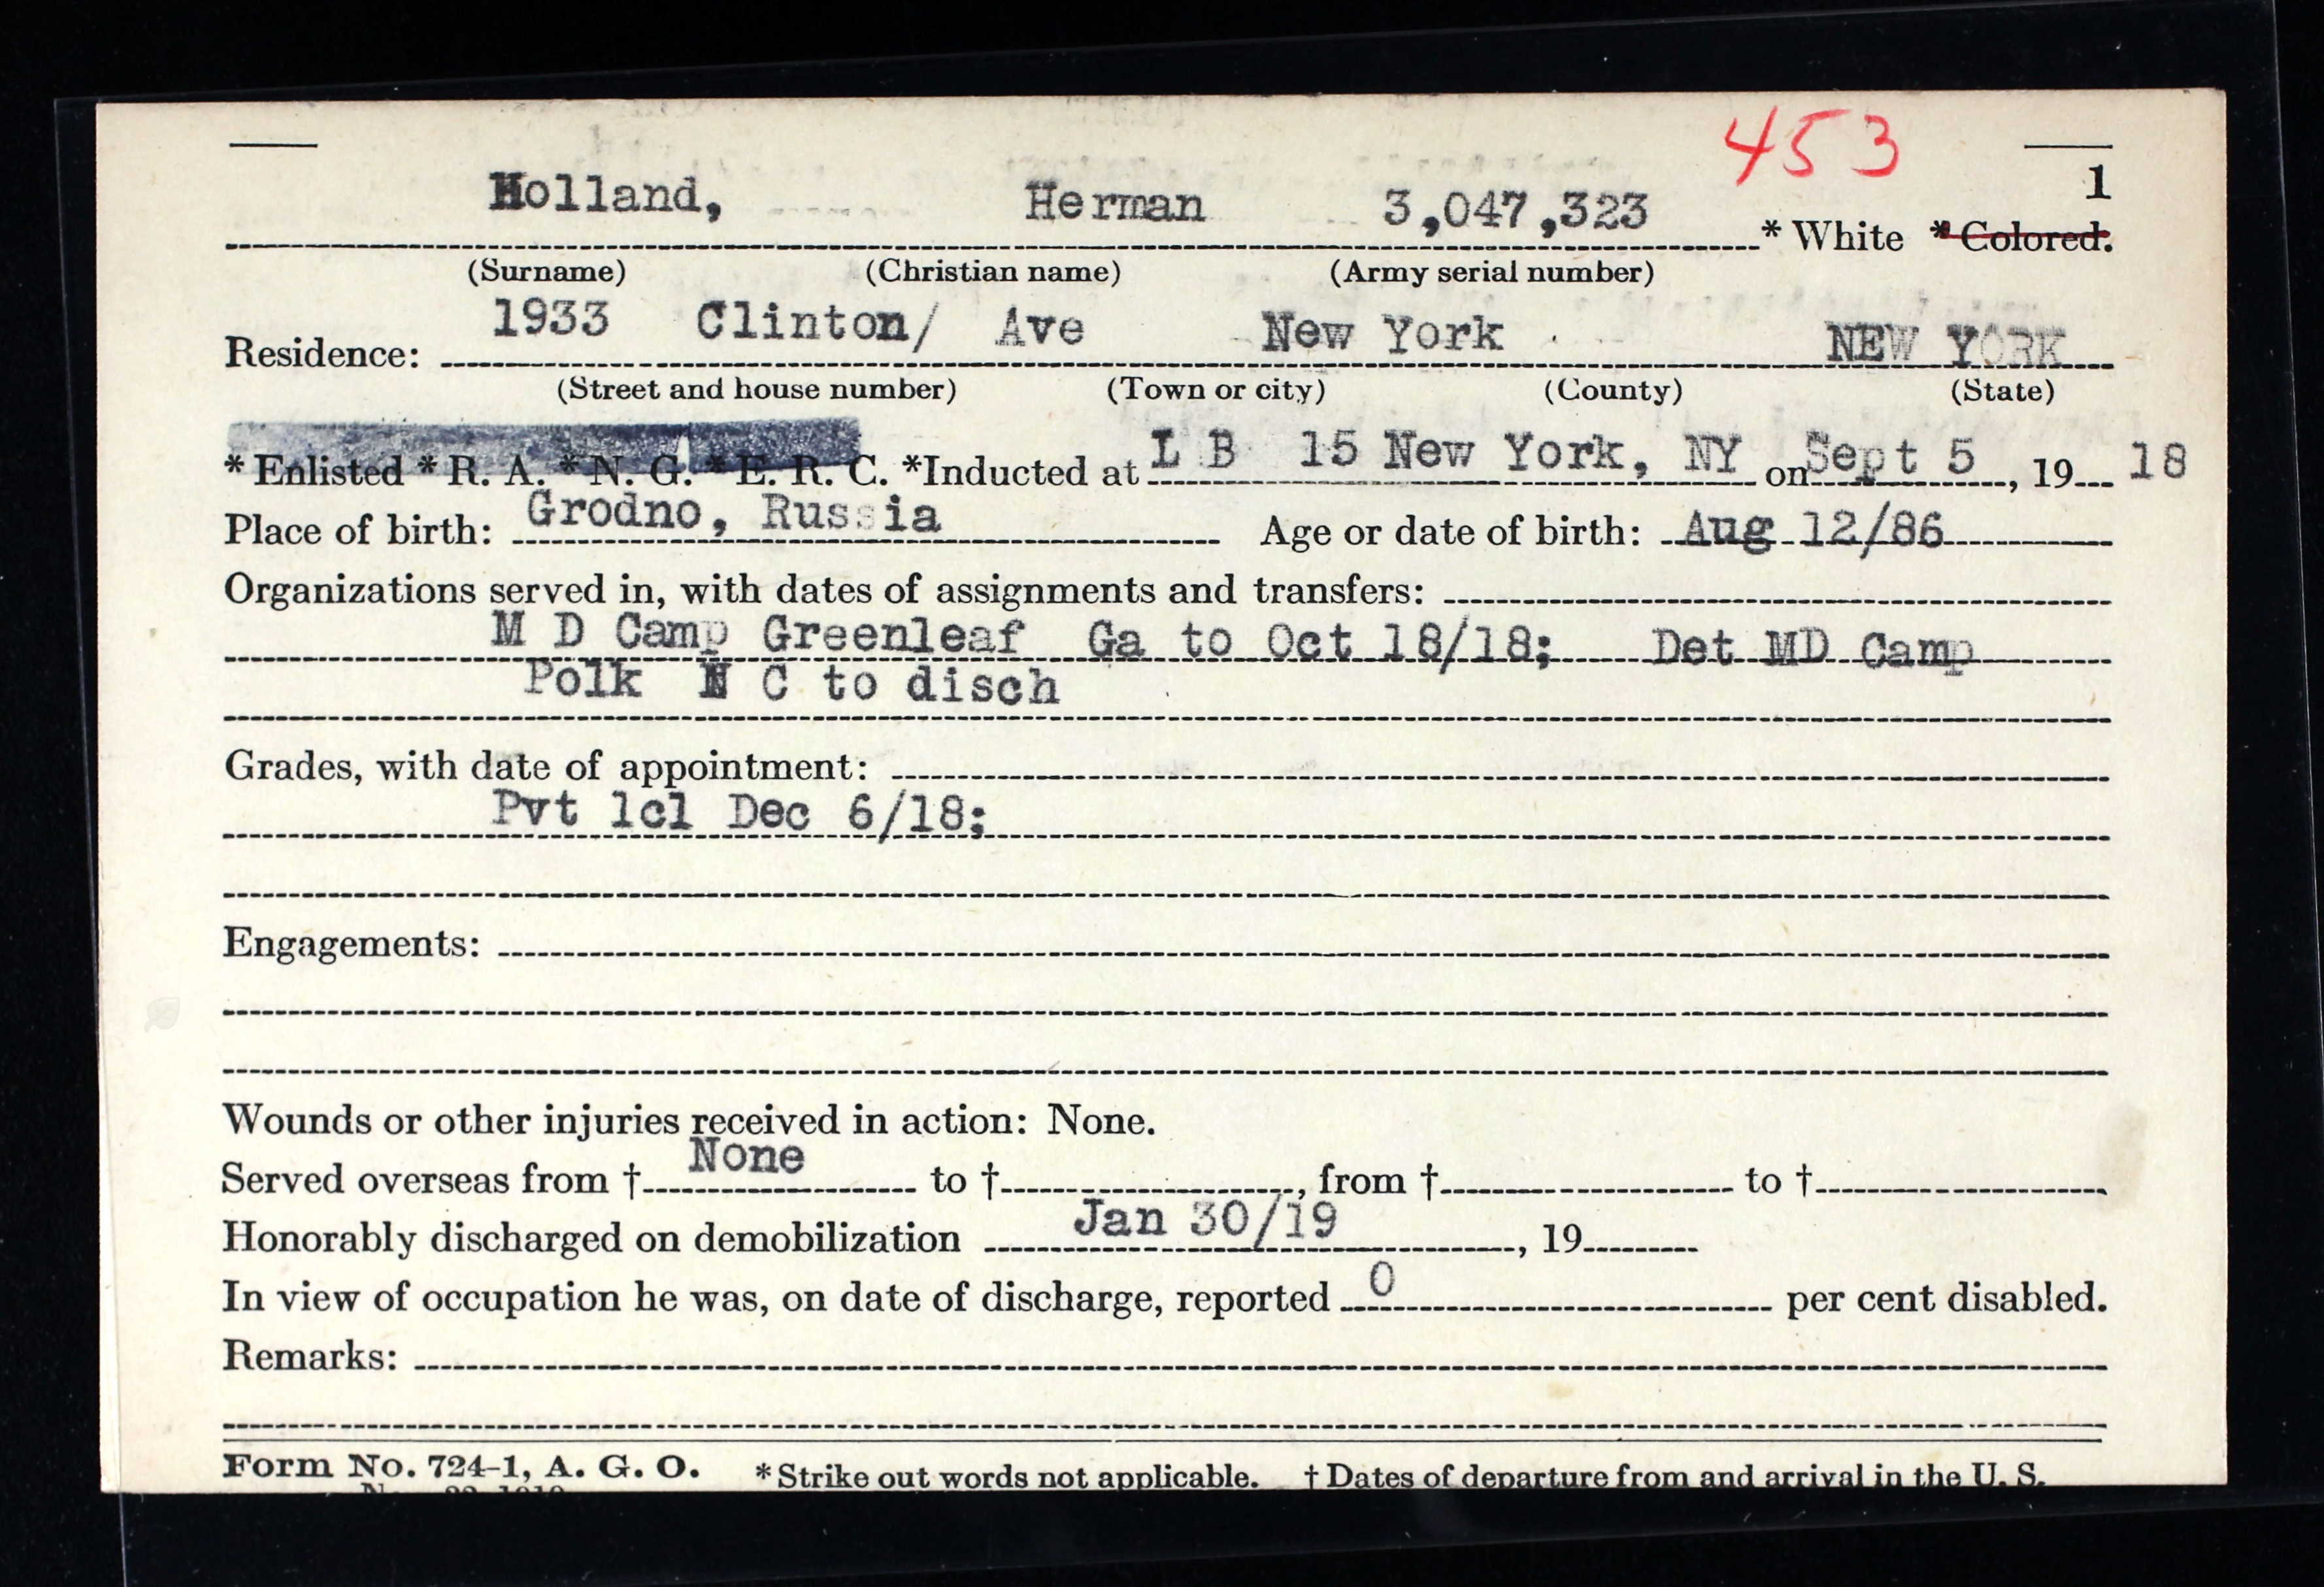 453
1
Holland, Herman 3,047,323 * White * Colored.
(Surname) (Christian name) (Army serial number)
1933 Clinton/ Ave New York NEW YORK
Residence:
(Street and house number) (Town or city) (County) (State)
* Enlisted * R. A. * N. G. * E. R. C. *Inducted at L B 15 New York, NY on Sept 5, 19 18
Place of birth: Grodno, Russia Age or date of birth: Aug 12/86
Organizations served in, with dates of assignments and transfers:
M D Camp Greenleaf Ga to Oct 18/18; Det MD Camp
Polk N C to disch
Grades, with date of appointment:
Pvt 1cl Dec 6/18;
Engagements:
Wounds or other injuries received in action: None.
Served overseas from † None to †, from † to †
Honorably discharged on demobilization Jan 30/19, 19
In view of occupation he was, on date of discharge, reported 0 per cent disabled.
Remarks:
Form No. 724-1, A. G. O. * Strike out words not applicable. † Dates of departure from and arrival in the U. S.